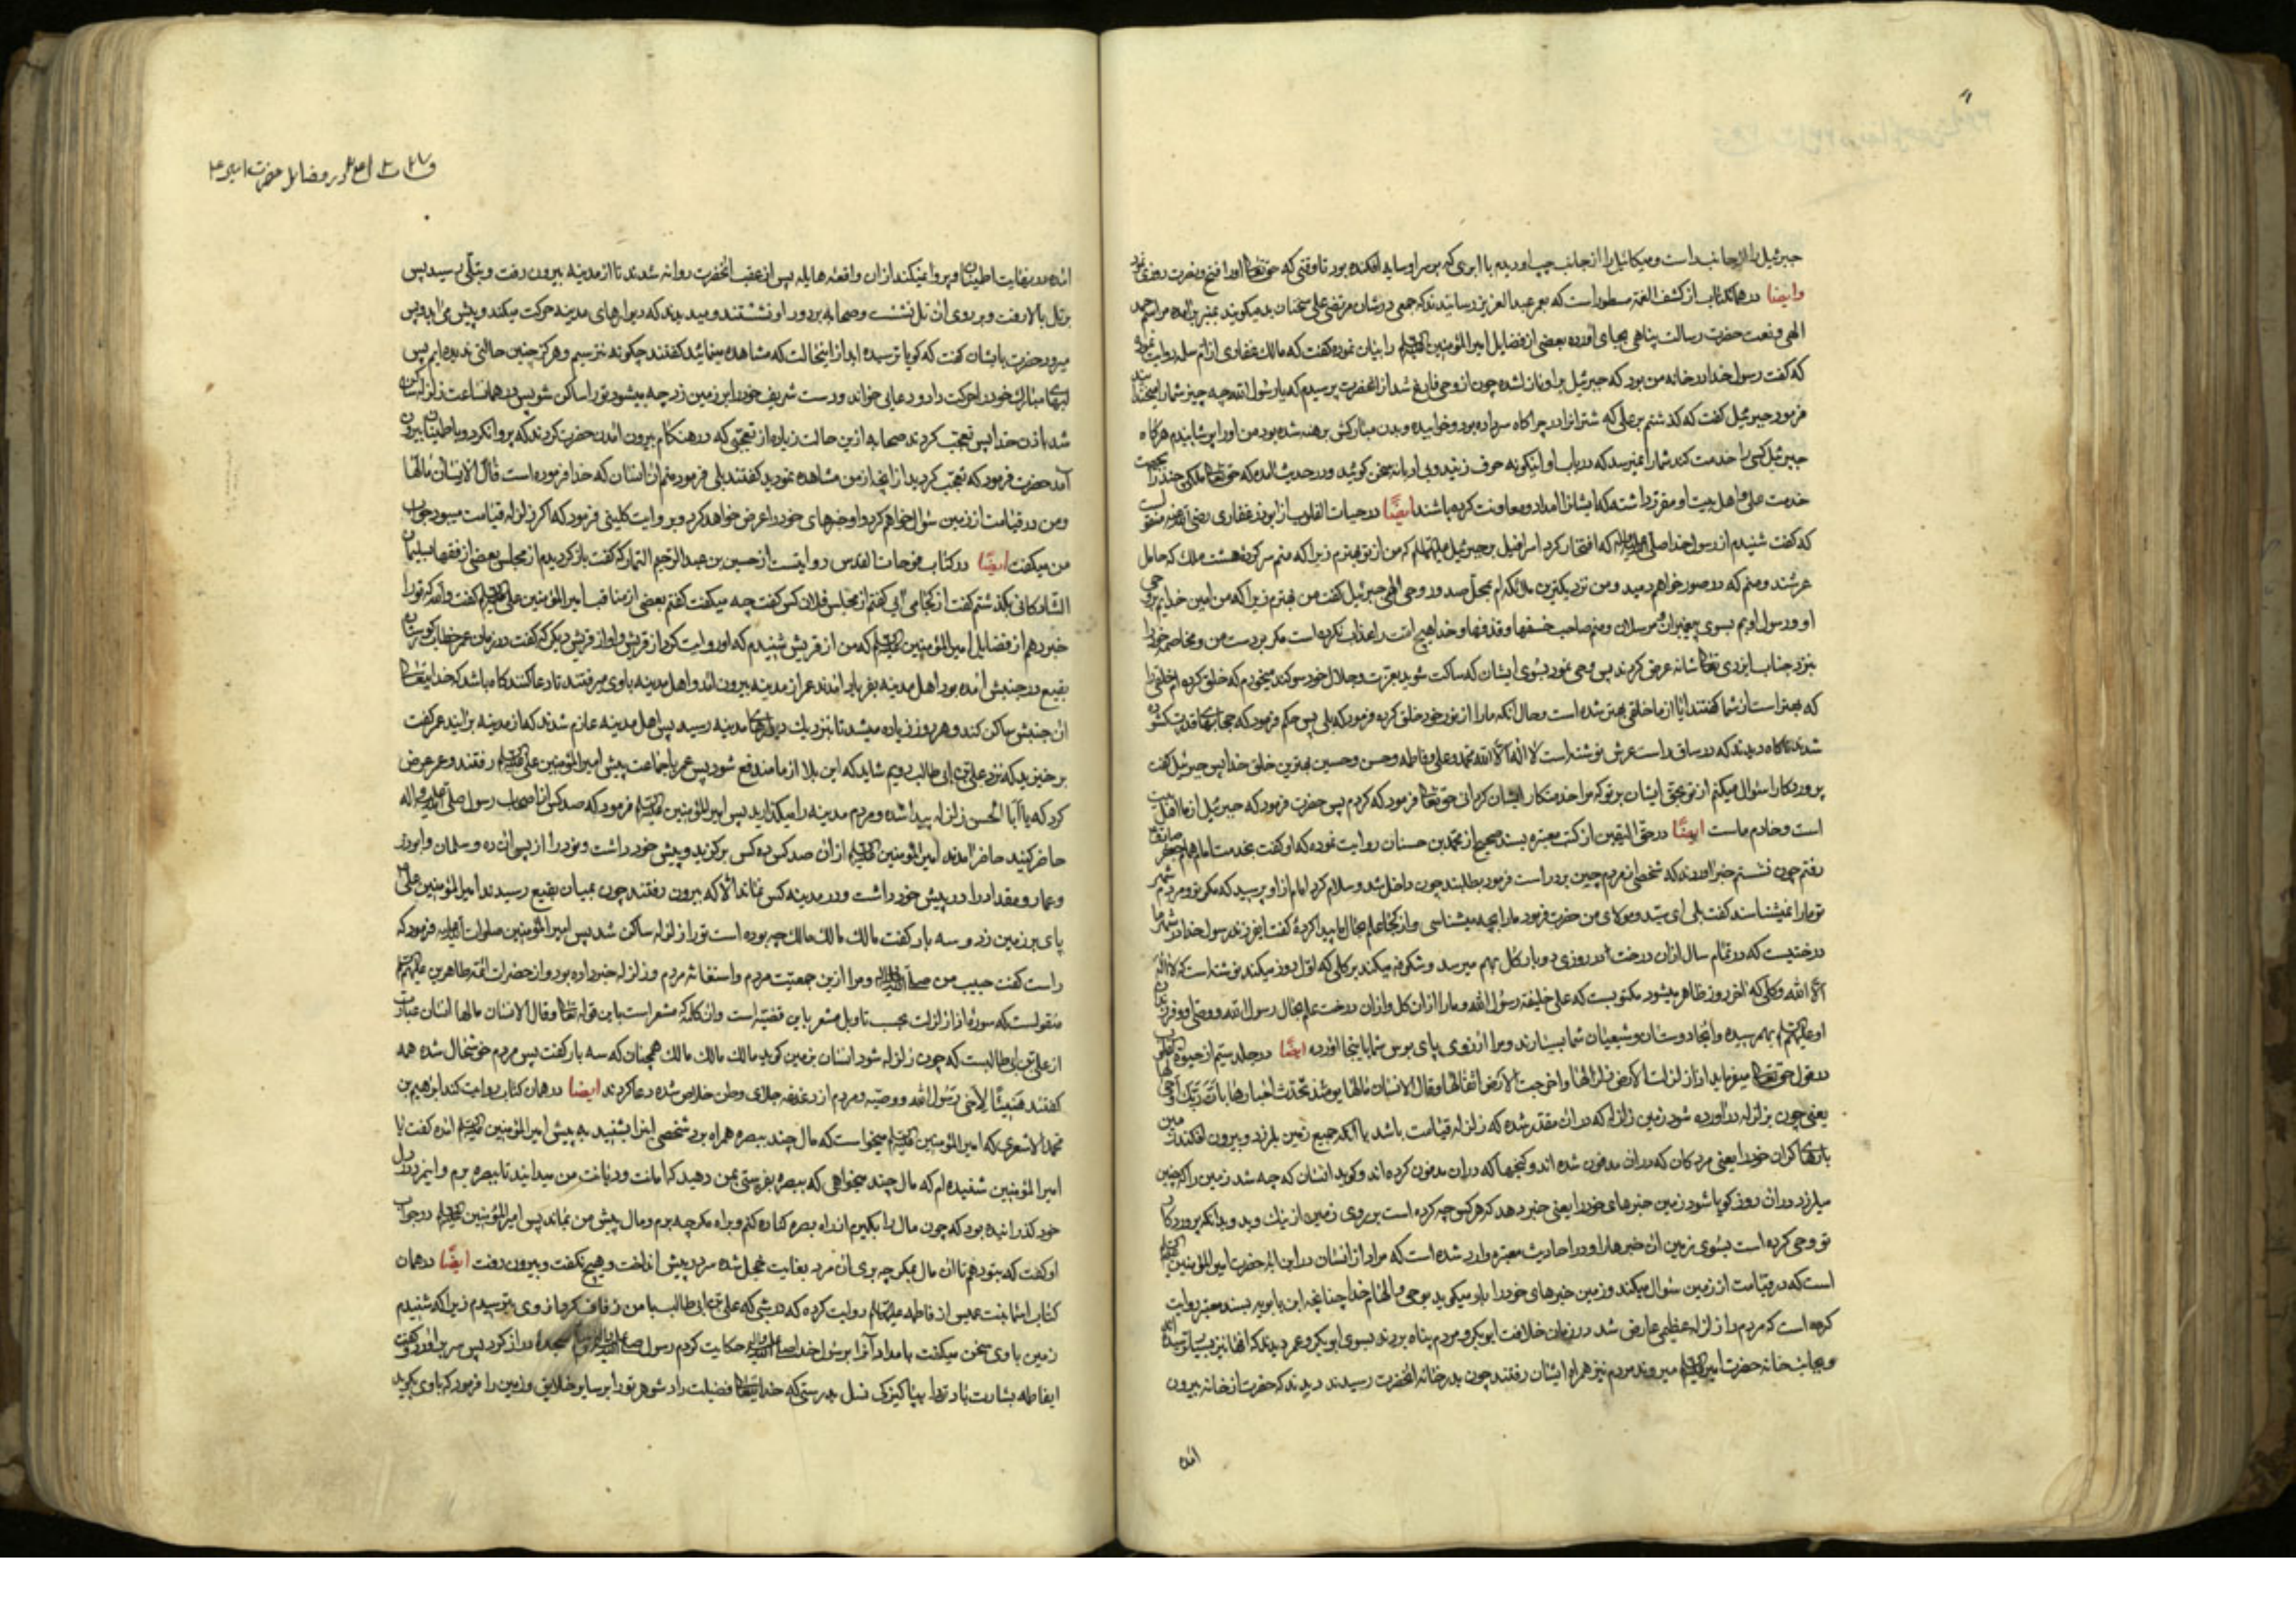 جبرئیل را از جانب راست و میکائیل را از جانب چپ او دیدم با ابری که بر سر او سایه افکنده بود تا وقتی که حق تعالی او را فتح و نصرت روزی
وایضا در همان کتاب از کشف الغمه مسطور است که بعمر عبد العزیز رسانیدند که جمعی در شان مرتضی علی سخنان بد میکویند بمنبر برآمده
الهی و نعت حضرت رسالت پناهی بجای آورده بعضی از فضایل امیر المؤمنین را بیان نموده کفت که مالک غفاری از ام سلمه روایت
که کفت رسول خدا در خانه من بود که جبرئیل بر او نازل شده چون از وحی فارغ شد از آنحضرت پرسیدم که یا رسول الله چه چیز شما را
فرمود جبرئیل کفت که کذشتم بر علی که شتران را در چراکاه سر داده بود و خوابیده و بدن مبارکش برهنه شده بود من او را پوشانیدم هرکاه
جبرئیل کسی را خدمت کند شما را نمیرسد که در باب او اینکونه حرف زنید و بی ادبانه سخن کوئید و در حدیث آمده که حق تعالی ملکی چند را
خدمت علی و اهل بیت او مقرر داشته که ایشان را امداد و معاونت کرده باشند ایضًا در حیات القلوب از ابوذر غفاری رضی الله عنه
که کفت شنیدم از رسول خدا که افتخار کرد اسرافیل بر جبرئیل که من از تو بهترم زیرا که منم سر کرده هشت ملک که حامل
عرشند و منم که در صور خواهم دمید و من نزدیکترین ملائکه ام بمحل صدور وحی الهی جبرئیل کفت من بهترم زیرا که من امین خدایم بر وحی
او و رسول اویم بسوی پیغمبران مرسلان و منم صاحب خسفها و قذفها و خدا هیچ امت را عذاب نکرده است مکر بر دست من
بنزد جناب ایزدی تعالی شانه عرض کردند پس وحی نمود بسوی ایشان که ساکت شوید بعزت و جلال خود سوکند میخورم که خلق کرده ام خلقی را
که بهتر است از شما کفتند آیا از ما خلقی بهتر شده است و حال آنکه ما را از نور خود خلق کرده فرمود که بلی پس حکم فرمود که حجابهای قدرت
شدند ناکاه دیدند که در ساق راست عرش نوشته است لا اله الا الله محمد و علی و فاطمه و حسن و حسین بهترین خلق خدا پس جبرئیل کفت
پروردکارا سئوال میکنم از تو بحق ایشان بر تو که مرا خدمتکار ایشان کردانی حق تعالی فرمود که کردم پس حضرت فرمود که جبرئیل از ما اهل بیت
است و خادم ماست ایضًا در حق الیقین از کتب معتبره بسند صحیح از محمد بن حسنان روایت نموده که او کفت بخدمت امام
رفتم چون نشستم خبر آوردند که شخصی از مردم چین بر در است فرمود بطلبند چون داخل شد و سلام کرد امام از او پرسید که مکر تو و مردم
تو ما را میشناسند کفت بلی ای سید و مولای من حضرت فرمود ما را بچه میشناسی و از کجا علم بحال ما پیدا کردهٔ کفت ای فرزند رسول خدا در شهر ما
درختیست که در تمام سال از آن درخت هر روزی دو بار کل بهم میرسد و شکوفه میکند بر کلی که اول روز میکند نوشته است که لا اله
الا الله و کلی که آخر روز ظاهر میشود مکتوبست که علی خلیفة رسول الله و ما را از آن کل و از آن درخت علم بحال رسول الله و وصی او و فرزندان
او بهم رسیده و آنجا دوستان و شیعیان شما بسیارند و مرا آرزوی پای بوس شما باینجا آورده ایضًا در جلد سیم از حیوة القلوب
در قول حق تعالی میفرماید اذا زلزلت الارض زلزالها و اخرجت الارض اثقالها و قال الانسان مالها یومئذ تحدث اخبارها بان ربک اوحی لها
یعنی چون بزلزله در آورده شود زمین زلزله که در آن مقدر شده که زلزله قیامت باشد یا آنکه جمیع زمین بلرزد و بیرون افکند زمین
بارهای کران خود را یعنی مردکان که در آن مدفون شده اند و کنجها که در آن مدفون کرده اند و کوید انسان که چه شد زمین را که چنین
میلرزد در آن روز کویا شود زمین خبرهای خود را یعنی خبر دهد که هر کس چه کرده است بر روی زمین از نیک و بد و بدانکه پروردکار
تو وحی کرده است بسوی زمین آن خبرها را و در احادیث معتبره وارد شده است که مراد از انسان در این آیه حضرت امیر المؤمنین
است که در قیامت از زمین سئوال میکند و زمین خبرهای خود را باو میکوید بوحی و الهام خدا چنانچه ابن بابویه بسند معتبر روایت
کرده است که مردم را زلزله عظیمی عارض شد در زمان خلافت ابوبکر و مردم پناه بردند بسوی ابوبکر و عمر دیدند که آنها نیز بسیار ترسیده
و بجانب خانه حضرت امیر میروند مردم نیز همراه ایشان رفتند چون بدر خانه آنحضرت رسیدند دیدند که حضرت از خانه بیرون
آمده
در فضایل حضرت امیر
آمده در نهایت اطمینان و پروا نمیکند از آن واقعه هایله پس از عقب آنحضرت روانه شدند تا از مدینه بیرون رفت و بتلی رسید پس
بر تل بالا رفت و بر روی آن تل نشست و صحابه بر دور او نشستند و میدیدند که دیوارهای مدینه حرکت میکند و پیش می آید و پس
میرود حضرت بایشان کفت که کویا ترسیده اید از اینحالت که مشاهده مینمائید کفتند چکونه نترسیم و هرکز چنین حالتی ندیده ایم پس
لبهای مبارک خود را حرکت داد و دعایی خواند و دست شریف خود را بر زمین زد چه میشود تو را ساکن شو پس در همانساعت زلزله ساکن
شد باذن خدا پس تعجب کردند صحابه ازین حالت زیاده از تعجبی که در هنکام بیرون آمدن حضرت کردند که پروا نکرد و باطمینان بیرون
آمد حضرت فرمود که تعجب کردید از آنچه از من مشاهده نمودید کفتند بلی فرمود منم آن انسان که خدا فرموده است قال الانسان مالها
و من در قیامت از زمین سئوال خواهم کرد و او خبرهای خود را عرض خواهد کرد و بروایت کلینی فرمود که اکر زلزله قیامت میبود جواب
من میکفت ایضًا در کتاب فوحات القدس روایتست از حسین بن عبد الرحیم التمار که کفت باز کردیدم از مجلس بعضی از فقها بسلیمان
الشادکانی بکذشتم کفت از کجا می آیی کفتم از مجلس فلان کس کفت چه میکفت کفتم بعضی از مناقب امیر المؤمنین علی کفت والله که تو را
خبر دهم از فضایل امیر المؤمنین که من از قریش شنیدم که او روایت کرد از قریش و او از قریش دیکر که کفت در زمان عمر خطاب کورستان
بقیع در جنبش آمده بود اهل مدینه بفریاد آمدند عمر از مدینه بیرون آمد و اهل مدینه با وی میرفتند تا دعا کنند که باشد که خدایتعالی
آن جنبش ساکن کند و هر روز زیاده میشد تا نزدیک دیوارهای مدینه رسید پس اهل مدینه عازم شدند که از مدینه برآیند عمر کفت
برخیزید که نزد علی بن ابی طالب رویم شاید که این بلا از ما مندفع شود پس عمر با جماعت پیش امیر المؤمنین علی رفتند و عمر عرض
کرد که یا ابا الحسن زلزله پیدا شده و مردم مدینه را میکذارید پس امیر المؤمنین فرمود که صد کس از اصحاب رسول صلی الله علیه و اله
حاضر کنید حاضر آمدند امیر المؤمنین از آن صد کس ده کس برکزید و پیش خود داشت و نود را از پس آن ده و سلمان و ابوذر
و عمار و مقداد را در پیش خود داشت و در مدینه کس نماند الا که بیرون رفتند چون بمیان بقیع رسیدند امیر المؤمنین علی
پای بر زمین زد و سه بار کفت مالک مالک مالک چه بوده است تو را زلزله ساکن شد پس امیر المؤمنین صلوات الله علیه فرمود که
راست کفت حبیب من و مرا ازین جمعیت مردم و استغاثه مردم و زلزله خبر داده بود و از حضرات ائمه طاهرین
منقولست که سورهٔ اذا زلزلت بحسب تاویل مشعر باین قضیه است و آن کلمه که مشعر است باین قوله تعالی و قال الانسان مالها انسان عبارت
از علی بن ابی طالبست که چون زلزله شود انسان بزمین کوید مالک مالک مالک همچنان که سه بار کفت پس مردم خوشحال شده همه
کفتند هنیئًا لاخی رسول الله و وصیه و مردم از دغدغه جلای وطن خلاص شده دعا کردند ایضا در همان کتاب روایت کند ابراهیم بن
محمد الاشعری که امیر المؤمنین میخواست که مال چند ببصره همراه برد شخصی این را بشنید به پیش امیر المؤمنین آمده کفت یا
امیر المؤمنین شنیده ام که مال چند میخواهی که ببصره بفرستی بمن دهید که امانت و دیانت من میدانید تا ببصره برم و این مرد در دل
خود کذرانیده بود که چون مال را بکیرم از راه بصره کناره کنم و براه مکه چه برم و مال پیش من بماند پس امیر المؤمنین در جواب
او کفت که بتو دهم تا آن مال بمکه چه بری آن مرد بغایت خجل شده سر در پیش انداخت و هیچ نکفت و بیرون رفت ایضًا در همان
کتاب اسما بنت عمیس از فاطمه روایت کرده که در شبی که علی بن ابی طالب با من زفاف کرد از وی بترسیدم زیرا که شنیدم
زمین با وی سخن میکفت بامداد آنرا برسول خدا حکایت کردم رسول سجدهٔ دراز کرد پس سر برآورد و کفت
ای فاطمه بشارت باد ترا بپاکیزکی نسل بدرستی که خدایتعالی فضیلت داد شوهر تو را بر سایر خلایق و زمین را فرمود که با وی بکوید